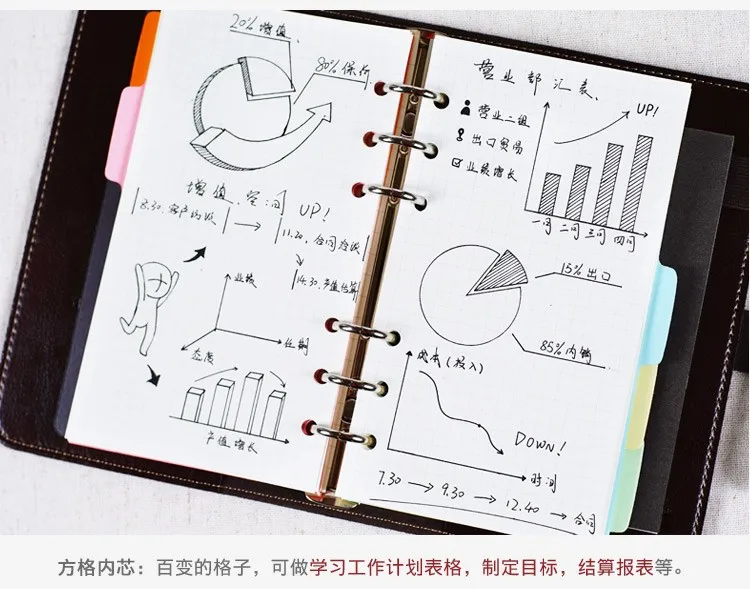 20% 增值
80% 保价
增值空间 UP!
8.30.客户约谈
11.20.合同洽谈
14.30.产值估算
业绩
任期
态度
产值增长
营业部汇表.
UP!
营业二组
出口贸易
业绩增长
一周 二周 三周 四周
15% 出口
85% 内销
成本(投入)
DOWN!
时间
7.30 → 9.30 → 12.40 → 合同
方格内芯：百变的格子，可做学习工作计划表格，制定目标，结算报表等。